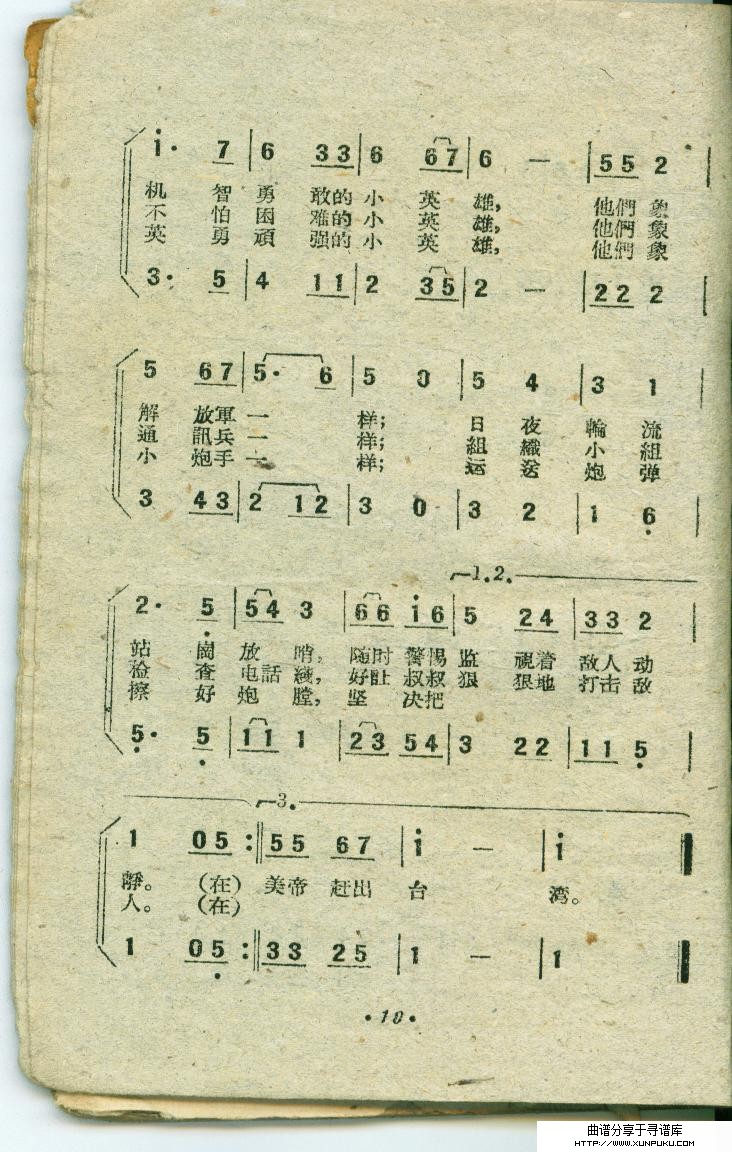 i· 7 | 6 33 | 6 67 | 6 — | 55 2 |
机 智 勇 敢的 小 英 雄， 他們 象
不 怕 困 难的 小 英 雄， 他們 象
英 勇 頑 强的 小 英 雄， 他們 象
3· 5 | 4 11 | 2 35 | 2 — | 22 2 |
5 67 | 5· 6 | 5 0 | 5 4 | 3 1 |
解 放軍 一 样； 日 夜 輪 流
通 訊兵 一 样； 組 織 小 組
小 炮手 一 样； 运 送 炮 弹
3 43 | 2 12 | 3 0 | 3 2 | 1 6 |
1.2.
2· 5 | 54 3 | 66 i6 | 5 24 | 33 2 |
站 崗 放 哨， 随时 警惕 监 視着 敌人 动
查 电話 綫， 好 叔叔 狠 狠地 打击 敌
擦 好 炮 膛， 坚 决把
5· 5 | 11 1 | 23 54 | 3 22 | 11 5 |
3.
1 05 :‖ 55 67 | i — | i
靜。 （在） 美帝 赶出 台 湾。
人。 （在）
1 05 :‖ 33 25 | 1 — | 1
·10·
曲谱分享于寻谱库
HTTP://WWW.XUNPUKU.COM